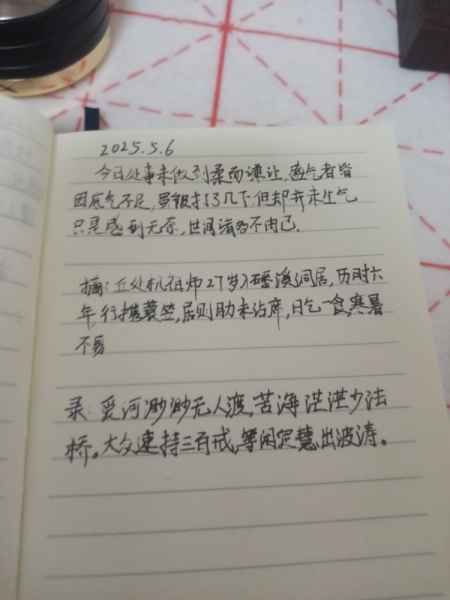 2025.5.6
今日处事未做到柔而谦让,逆气者皆
因底气不足,罪银打13几下,但却并未生气
只是感到无奈,世间诸多不由己.
摘:丘处机祖师27岁入磻溪洞居,历时六
年,行携蓑笠,居则胁未沾席,日乞一食,寒暑
不易
录 爱河渺渺无人渡,苦海茫茫少法
桥。大众速持三百戒,等闲定慧出波涛。